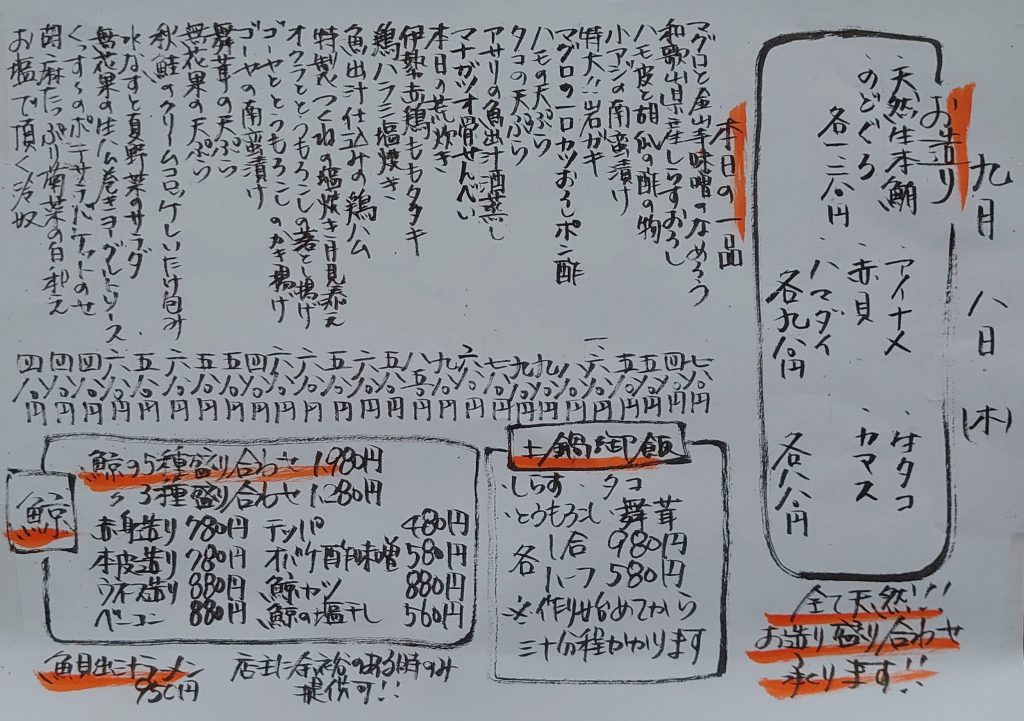 九月 八日 (木)
お造り
・天然生本鮪
・のどぐろ
各一二八〇円
・アイナメ
・赤貝
・ハマダイ
各九八〇円
・活タコ
・カマス
各八八〇円
全て天然!!!
お造り盛り合わせ
承ります!!
本日の一品
マグロと金山寺味噌のなめろう 七八〇円
和歌山県産しらすおろし 四八〇円
ハモ皮と胡瓜の酢の物 五八〇円
小アジの南蛮漬け 五八〇円
特大!!岩ガキ
ハモの天ぷら
マグロの一口カツおろしポン酢
タコの天ぷら
アサリの魚出汁酒蒸し
マナガツオ骨せんべい
本日の荒炊き
伊勢赤鶏ももタタキ
鶏ハラミ塩焼き
魚出汁仕込みの鶏ハム
特製つくねの塩焼き月見添え
オクラととうもろこしの落とし揚げ
ゴーヤととうもろこしのかき揚げ
ゴーヤの南蛮漬け
舞茸の天ぷら
無花果の天ぷら
秋鮭のクリームコロッケしいたけ包み
水なすと夏野菜のサラダ
無花果の生ハム巻きヨーグルトソース
くっすーのポテサラバケットのせ 四八〇円
胡麻たっぷり菊菜の白和え 四八〇円
お塩で頂く冷奴 四八〇円
土鍋御飯
・しらす ・タコ
・とうもろこし ・舞茸
各 1合 980円
ハーフ 580円
※作り始めてから
三十分程かかります
鯨
鯨の5種盛り合わせ 1,980円
〃 3種盛り合わせ 1,280円
赤身造り 780円 テッパ 480円
本皮造り 780円 オバケ酢味噌 580円
ウネ造り 880円 鯨カツ 880円
ベーコン 880円 鯨の塩干し 560円
魚貝出汁ラーメン
950円
店主に余裕のある時のみ
提供可!!